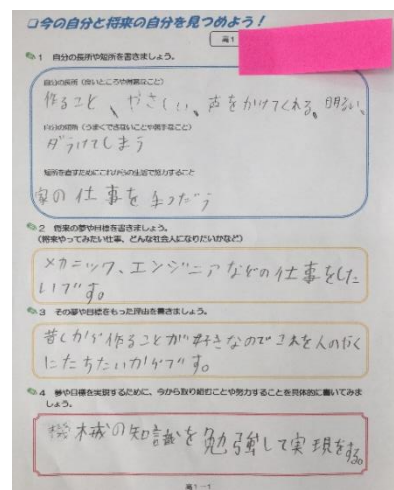 □今の自分と将来の自分を見つめよう！
高1
1 自分の長所や短所を書きましょう。
自分の長所（良いところや得意なこと）
作ること、やさしい、声をかけてくれる、明るい、
自分の短所（うまくできないことや苦手なこと）
ダラけてしまう
短所を直すためにこれからの生活で努力すること
家の仕事を手つだう
2 将来の夢や目標を書きましょう。
（将来やってみたい仕事、どんな社会人になりたいかなど）
メカニック、エンジニアなどの仕事をした
いです。
3 その夢や目標をもった理由を書きましょう。
昔しから作ることが好きなのでこれを人のやく
にたちたいからです。
4 夢や目標を実現するために、今から取り組むことや努力することを具体的に書いてみま
しょう。
機械の知識を勉強して実現をする。
高1－1